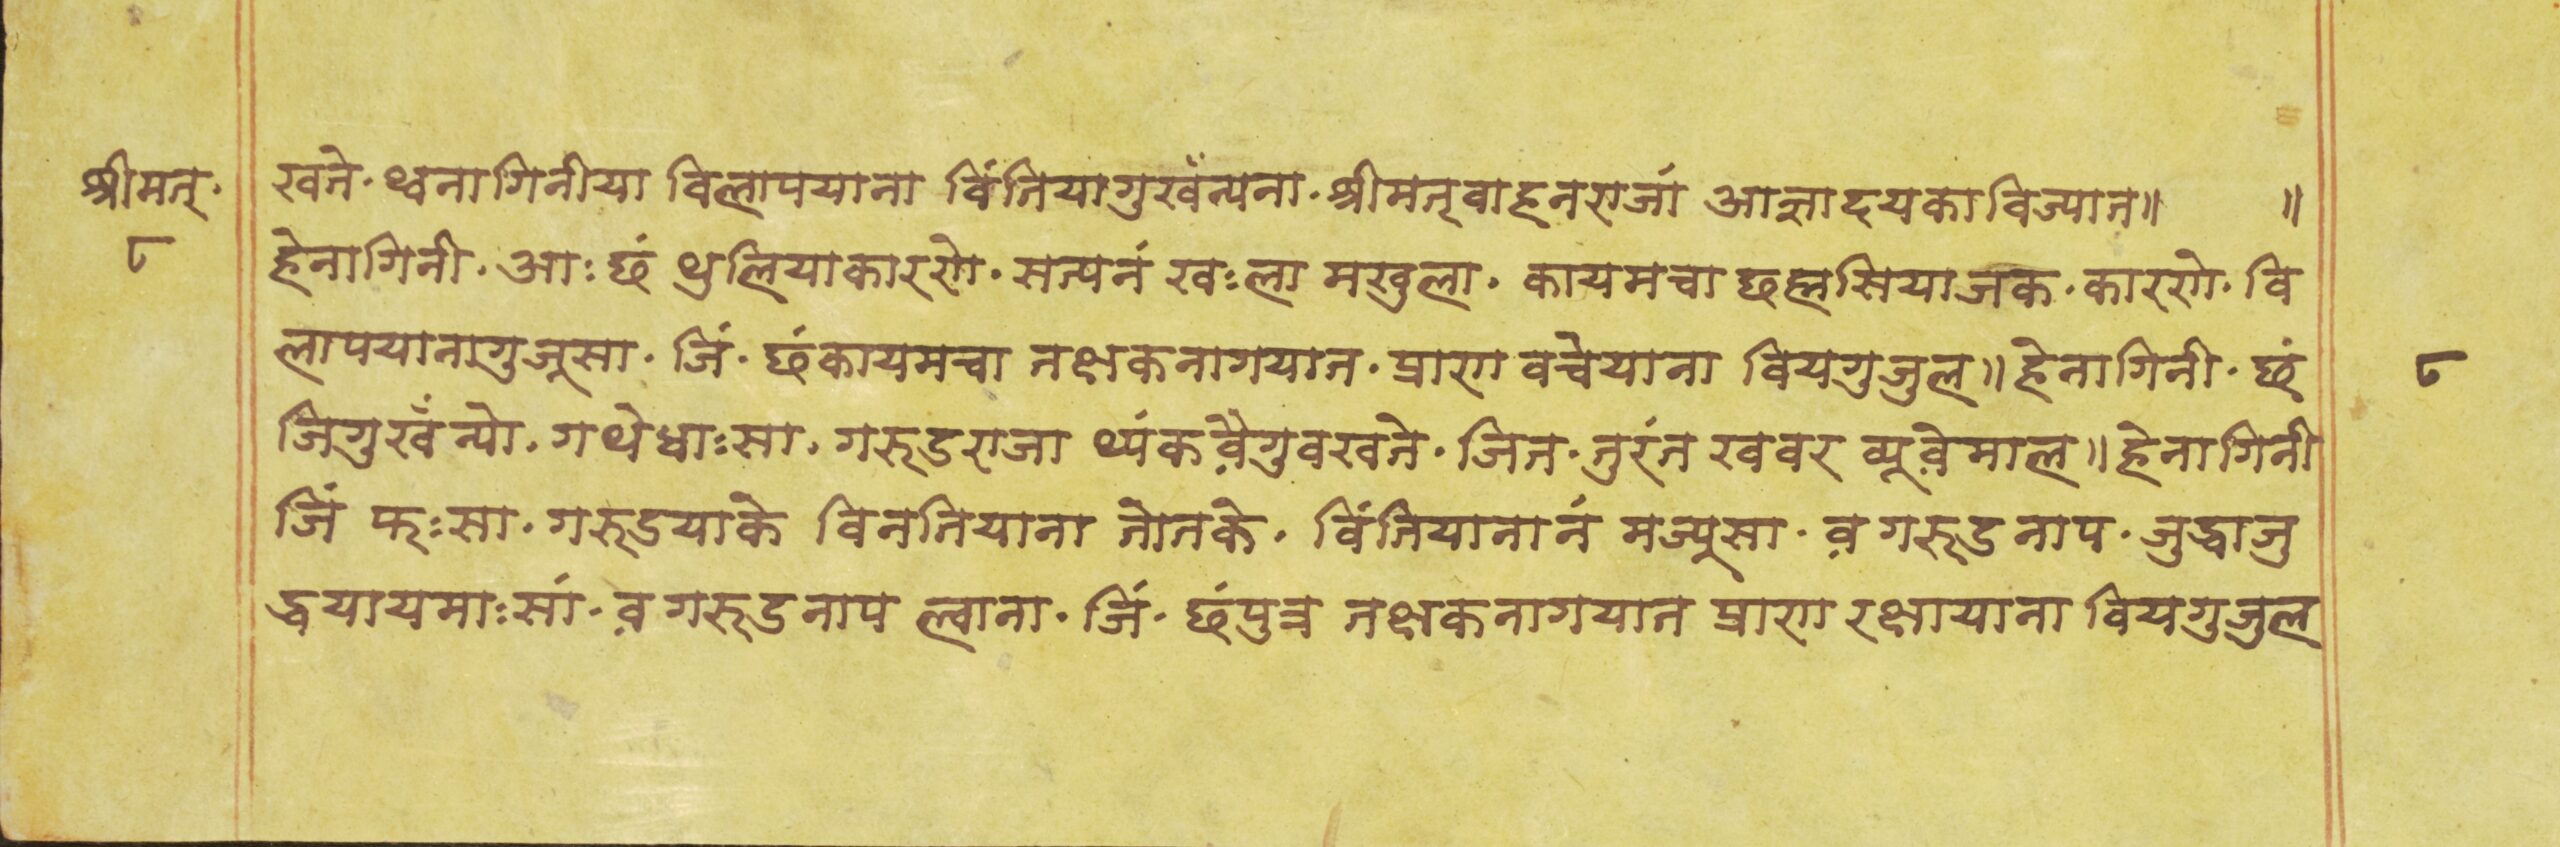 श्रीमत्· खते· थ्वनागिनीया विलापयाना विंतियागुखँन्यना· श्रीमत्वाहनराजां आज्ञादयकाविज्यात॥ ॥
८ हेनागिनी· आः छं थुलियाकारणे· सत्यनं खःला मखुला· कायमचा छह्मसियाजक· कारणे· वि
लापयानागुजूसा· जिं· छंकायमचा तक्षकनागयात· प्राण वचेयाना वियगुजुल॥ हेनागिनी· छं ८
जिगुखँन्यो· गथेधाःसा· गरूडराजा थ्यंक वै़गुवखते· जित· तुरंत खवर व्यूवे़माल॥ हेनागिनी
जिं फःसा· गरूडयाके विनतियाना तोतके· विंतियानानं मज्यूसा· व़ गरूडनाप· जुद्धाजु
द्धयायमाःसां· व़ गरूडनाप ल्वाना· जिं· छंपुत्र तक्षकनागयात प्राण रक्षायाना वियगुजुल